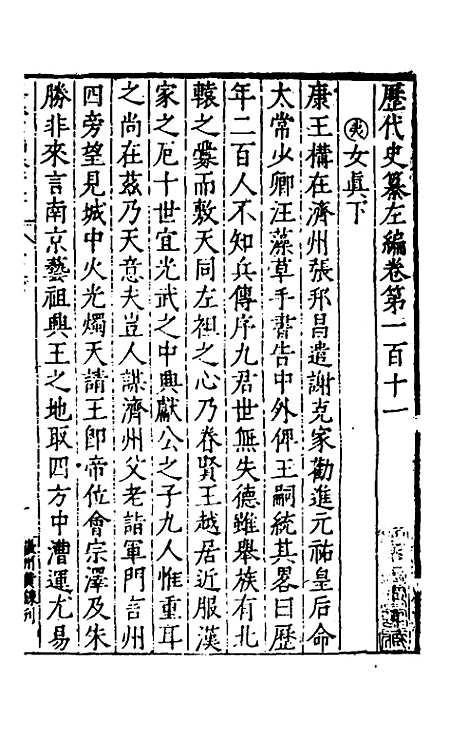 歷代史纂左編卷第一百十一
夷女眞下
康王構在濟州張邦昌遣謝克家勸進元祐皇后命
太常少卿汪藻草手書告中外俾王嗣統其畧曰歷
年二百人不知兵傳序九君世無失德雖舉族有北
轅之釁而敷天同左袒之心乃眷賢王越居近服漢
家之厄十世宜光武之中興獻公之子九人惟重耳
之尚在茲乃天意夫豈人謀濟州父老詣軍門言州
四旁望見城中火光燭天請王即帝位會宗澤及朱
勝非來言南京藝祖興王之地取四方中漕運尤易